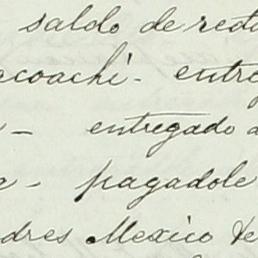 saldo de resta
acoachi - entreg
- entregado a
- pagadole
dres Mexico de